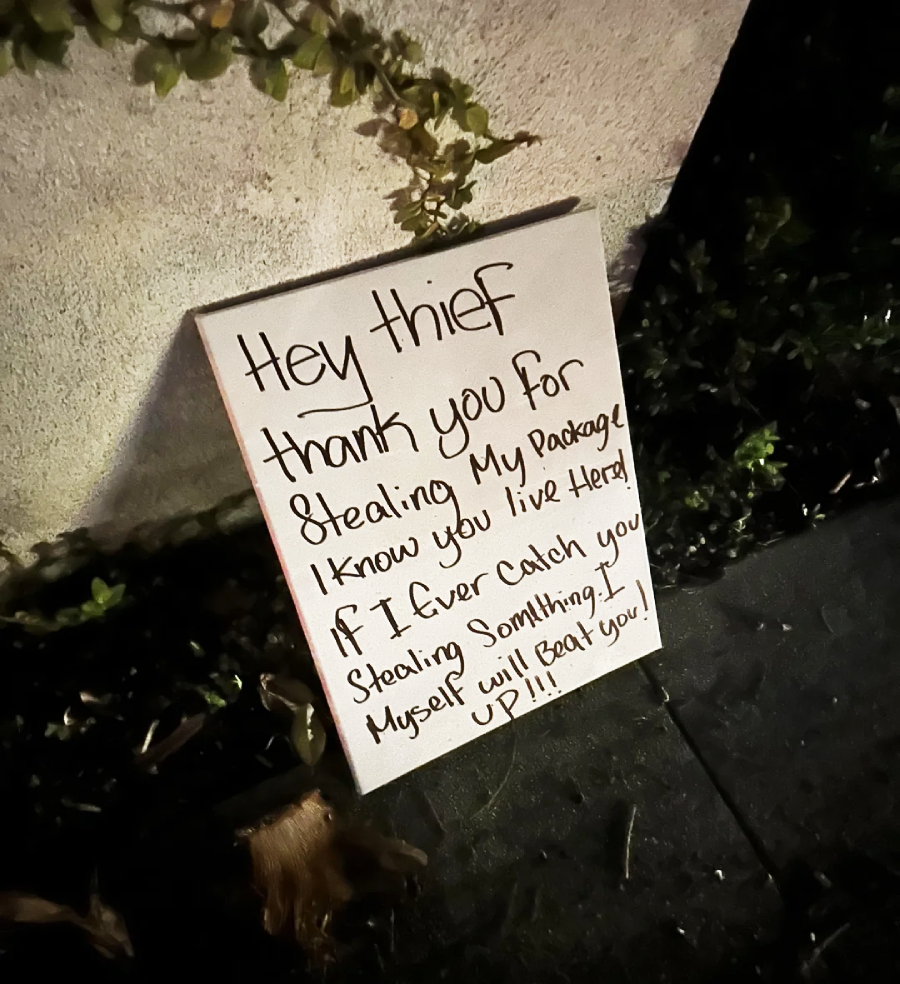 Hey thief
thank you for
Stealing My Package
I know you live Here!
If I Ever catch you
Stealing Somthing. I
Myself will Beat you!
UP!!!